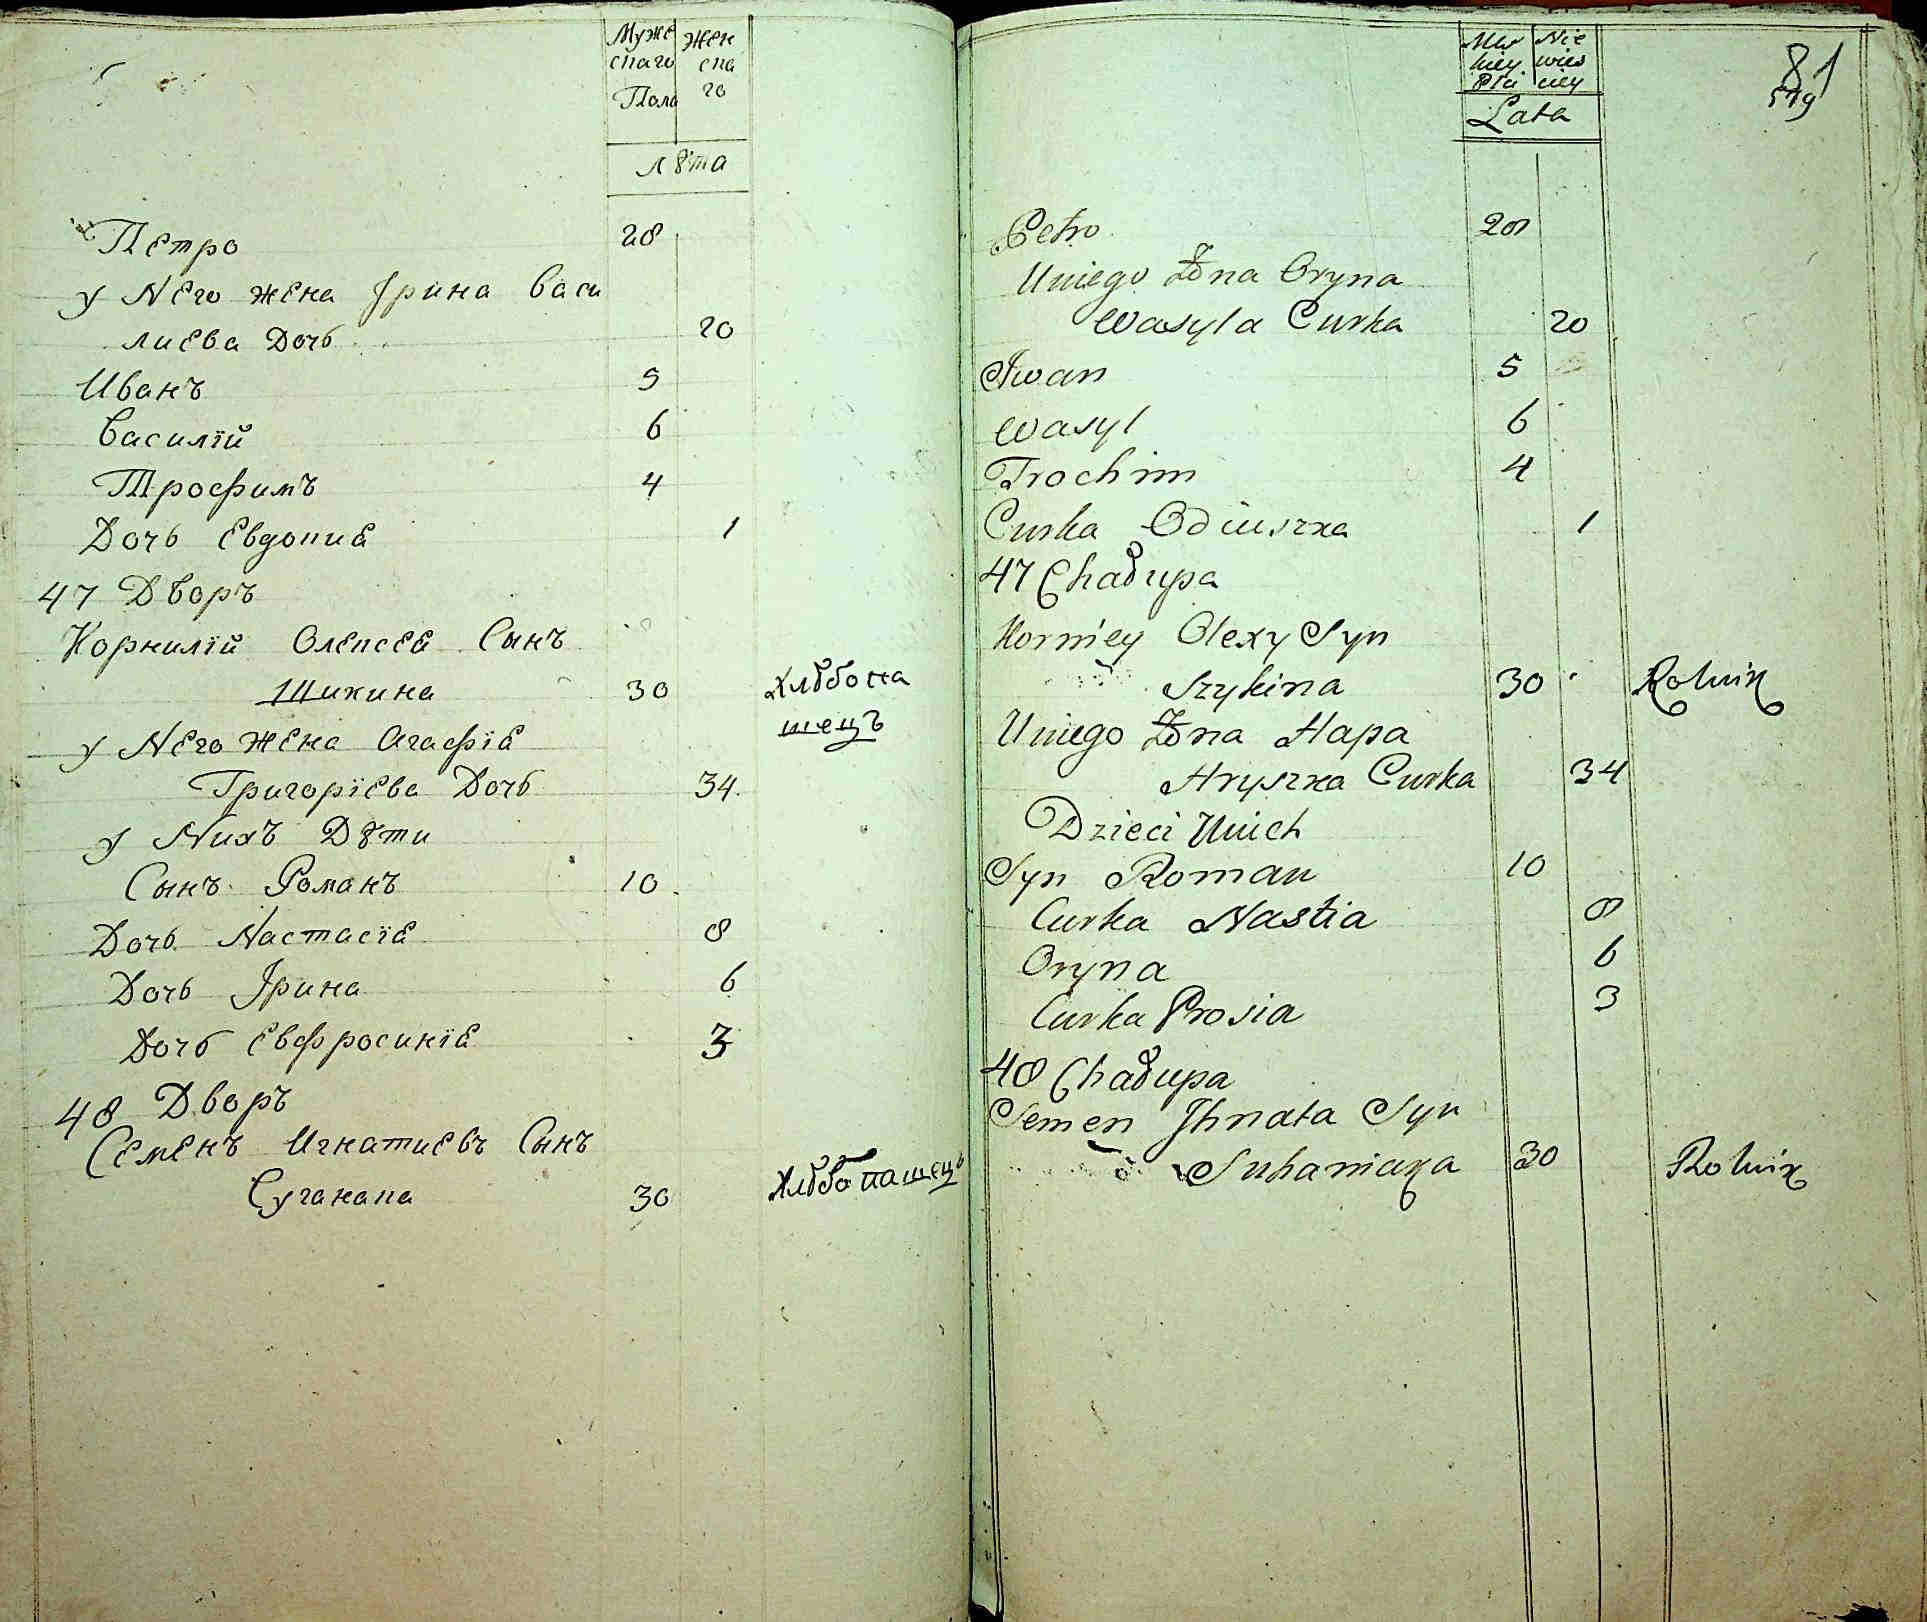 Муже Жен
скаго ска
Пола го
Лѣта
Петро 28
у Него жена Ірина Васи
лиева Дочь 20
Иванъ 5
Василій 6
Трофимъ 4
Дочь Евдокиа 1
47 Дворъ
Корнилій Олексеа Сынъ
Шикина 30 Хлѣбопа
шецъ
у Него жена Агафіа
Григоріева Дочь 34
у Нихъ Дѣти
Сынъ Романъ 10
Дочь Настасіа 8
Дочь Ірина 6
Дочь Евфросиніа 3
48 Дворъ
Семенъ Игнатиевъ Сынъ
Суганака 30 Хлѣбопашецъ
81
519
Mez Nie
kiey wies
Płci ciey
Lata
Petro 28
Uniego Żona Oryna
Wasyla Curka 20
Iwan 5
Wasyl 6
Trochim 4
Curka Odiuszka 1
47 Chałupa
Korniey Olexy Syn
Szykina 30 Rolnik
Uniego Żona Hapa
Hryszka Curka 34
Dzieci Unich
Syn Roman 10
Curka Nastia 8
Oryna 6
Curka Prosia 3
48 Chałupa
Semen Ihnata Syn
Suhaniaka 30 Rolnik